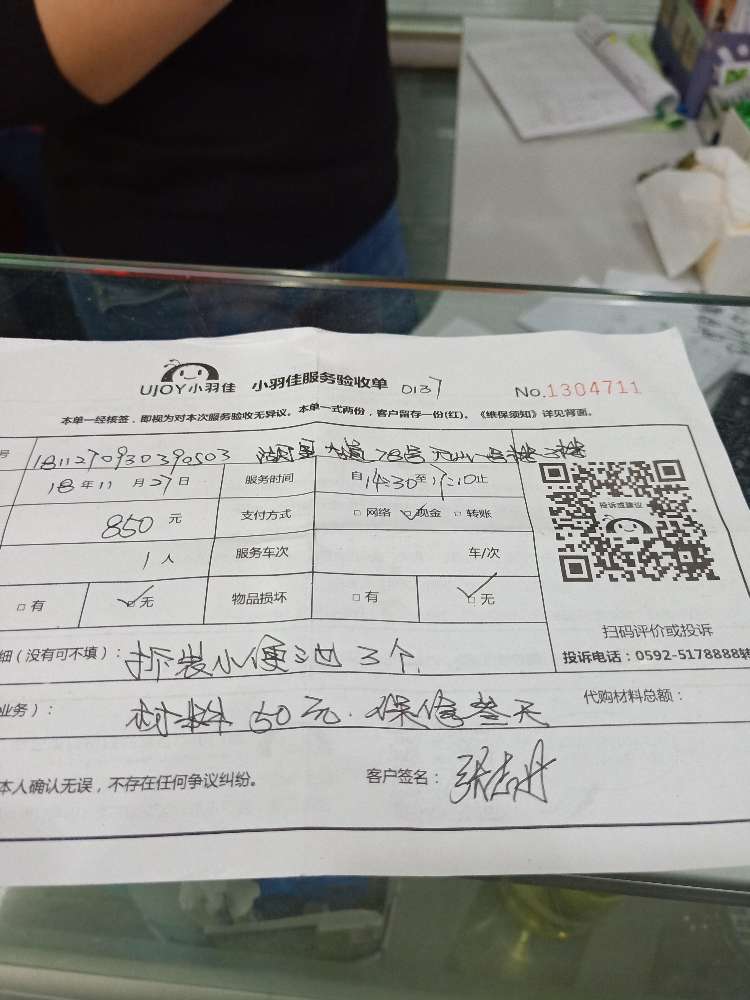 UJOY小羽佳 小羽佳服务验收单 0137 No.1304711
本单一经核签，即视为对本次服务验收无异议。本单一式两份，客户留存一份(红)。《维保须知》详见背面。
号 1811270930390503 78号
18年11月27日 服务时间 自14:30至17:10止
850元 支付方式 □网络 ☑现金 □转账
投诉或建议
1人 服务车次 车/次
□有 ☑无 物品损坏 □有 ☑无
扫码评价或投诉
细（没有可不填）： 拆装小便池3个 投诉电话：0592-5178888转
业务）： 材料50元. 保修叁天 代购材料总额：
本人确认无误，不存在任何争议纠纷。 客户签名：